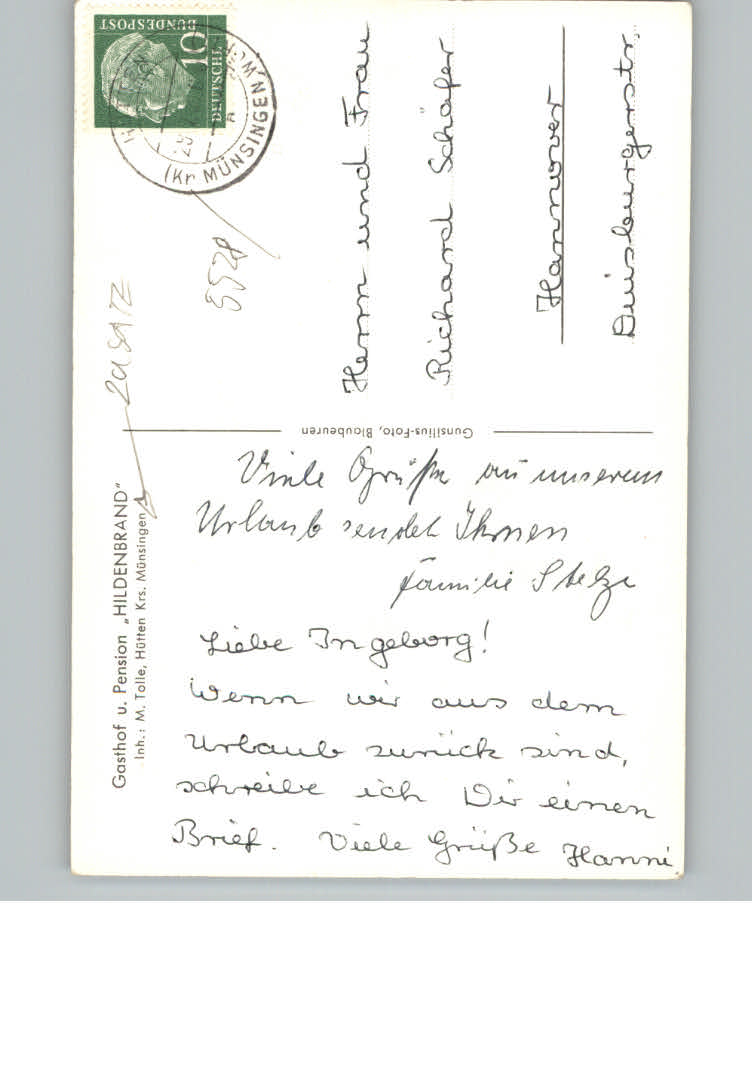 Gasthof u. Pension „HILDENBRAND"
Inh.: M. Tolle, Hütten Krs. Münsingen
Viele Grüße aus unserem
Urlaub sendet Ihnen
Familie Stelze
Liebe Ingeborg!
Wenn wir aus dem
Urlaub zurück sind,
schreibe ich Dir einen
Brief. Viele Grüße Hanni
Gunsilius-Foto, Blaubeuren
DEUTSCHE
BUNDESPOST
10
(Kr MÜNSINGEN
Herrn und Frau
Richard Schäfer
Hannover
Duisburgerstr.